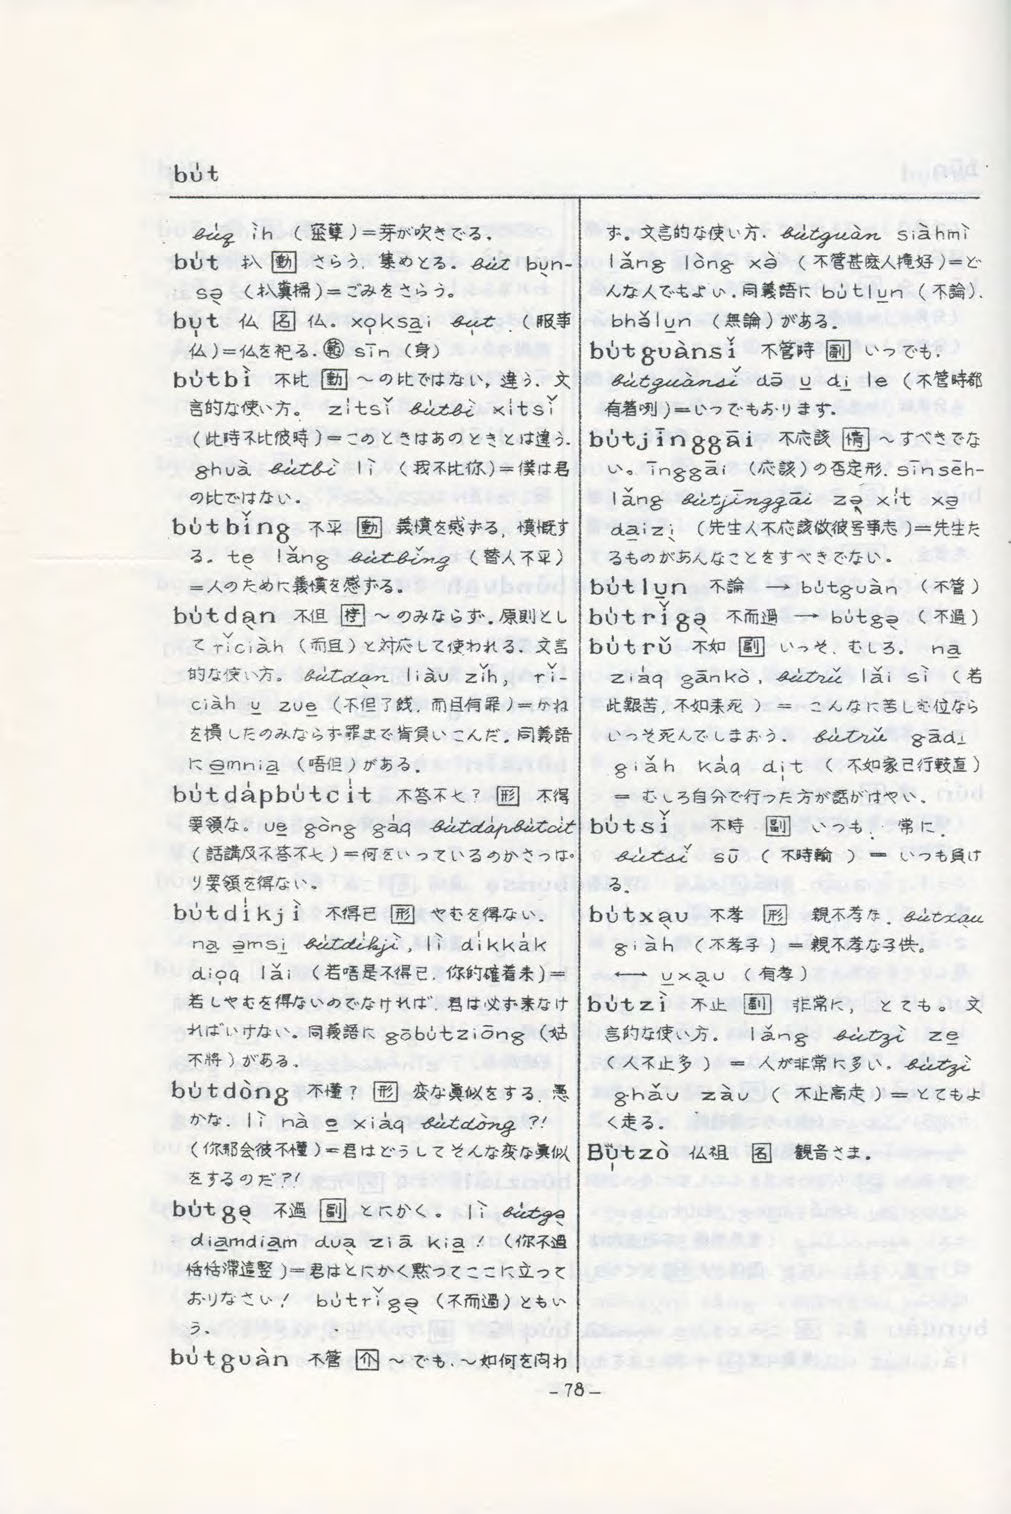 bu̍t
bu̍q ìh (蓜蕈)=芽が吹きでる.
bu̍t 扒 [動] さらう, 集めとる. bu̍t bu̠n-
sə̠ (扒糞掃)=ごみをさらう。
bu̩t 仏 [名] 仏. xo̩ksa̠i bu̩t. (服事
仏)=仏を祀る. 範 sīn (身)
bu̍tbì 不比 [動] ～の比ではない, 違う. 文
言的な使い方。 zi̍tsǐ bu̍tbì xi̍tsǐ
(此時不比彼時)=このときはあのときとは違う.
ghuà bu̍tbì lì (我不比你)=僕は君
の比ではない.
bu̍tbǐng 不平 [動] 義憤を感ずる, 憤慨す
る. te̠ lǎng bu̍tbǐng (替人不平)
=人のために義憤を感ずる.
bu̍tda̠n 不但 [接] ～のみならず. 原則とし
て rǐciàh (而且)と対応して使われる. 文言
的な使い方. bu̍tda̠n liàu zǐh, rǐ-
ciàh u̠ zue̠ (不但了銭, 而且有罪)=かね
を損したのみならず罪まで背負いこんだ. 同義語
に əmnia̠ (唔但)がある.
bu̍tda̍pbu̍tci̍t 不答不七? [形] 不得
要領な. ue̠ gòng ga̍q bu̍tda̍pbu̍tci̍t
(話講及不答不七)=何をいっているのかさっぱ
り要領を得ない.
bu̍tdi̍kjì 不得已 [形] やむを得ない.
na̠ əmsi̠ bu̍tdi̍kjì, lì di̍kka̍k
dio̩q lǎi (若唔是不得已, 你的確着来)=
若しやむを得ないのでなければ, 君は必ず来なけ
ればいけない. 同義語に gōbu̍tziōng (姑
不將)がある.
bu̍tdòng 不懂? [形] 変な真似をする, 愚
かな. lì nà e̠ xia̍q bu̍tdòng ?!
(你那会彼不懂)=君はどうしてそんな変な真似
をするのだ?!
bu̍tgə̠ 不過 [副] とにかく. lì bu̍tgə̠
dia̠mdia̠m dua̠ ziā kia̠! (你不過
恬恬滞這竪)=君はとにかく黙ってここに立って
おりなさい! bu̍trǐgə̠ (不而過)ともい
う.
bu̍tguàn 不管 [介] ～でも, ～如何を問わ
ず. 文言的な使い方. bu̍tguàn siàhmì
lǎng lòng xə̀ (不管甚麽人攏好)=ど
んな人でもよい. 同義語に bu̍tlu̠n (不論),
bhǒlu̠n (無論)がある.
bu̍tguànsǐ 不管時 [副] いつでも.
bu̍tguànsǐ dō u̠ di̠ le (不管時都
有着咧)=いつでもおります.
bu̍tjīnggāi 不応該 [情] ～すべきでな
い. īnggāi (応該)の否定形. sīnsēh-
lǎng bu̍tjīnggāi zə̠ xi̍t xə̠
da̠izi̠ (先生人不応該做彼号事志)=先生た
るものがあんなことをすべきでない.
bu̍tlu̠n 不論 → bu̍tguàn (不管)
bu̍trǐgə̠ 不而過 → bu̍tgə̠ (不過)
bu̍trǔ 不如 [副] いっそ, むしろ. na̠
zia̍q gānkò, bu̍trǔ lǎi sì (若
此艱苦, 不如来死) = こんなに苦しむ位なら
いっそ死んでしまおう. bu̍trǔ gādi̠
giǎh ka̍q di̩t (不如家己行較直)
= むしろ自分で行った方が話がはやい.
bu̍tsǐ 不時 [副] いつも, 常に.
bu̍tsǐ sū (不時輸) = いつも負け
る.
bu̍txa̠u 不孝 [形] 親不孝な. bu̍txa̠u
giàh (不孝子) = 親不孝な子供.
←→ u̠xa̠u (有孝)
bu̍tzì 不止 [副] 非常に, とても。 文
言的な使い方. lǎng bu̍tzì ze̠
(人不止多) = 人が非常に多い. bu̍tzì
ghǎu zàu (不止高走)=とてもよ
く走る.
Bu̩tzò 仏祖 [名] 観音さま.
- 78 -